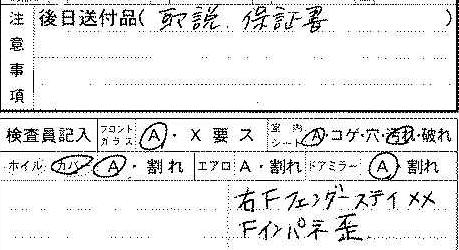 注意事項
後日送付品( 取説、保証書 )
検査員記入 フロントガラス A・X 要 ス 室内シート A・コゲ・穴・汚れ・破れ
ホイル カバー A・割れ エアロ A・割れ ドアミラー A・割れ
右Fフェンダーステイ××
Fインパネ歪